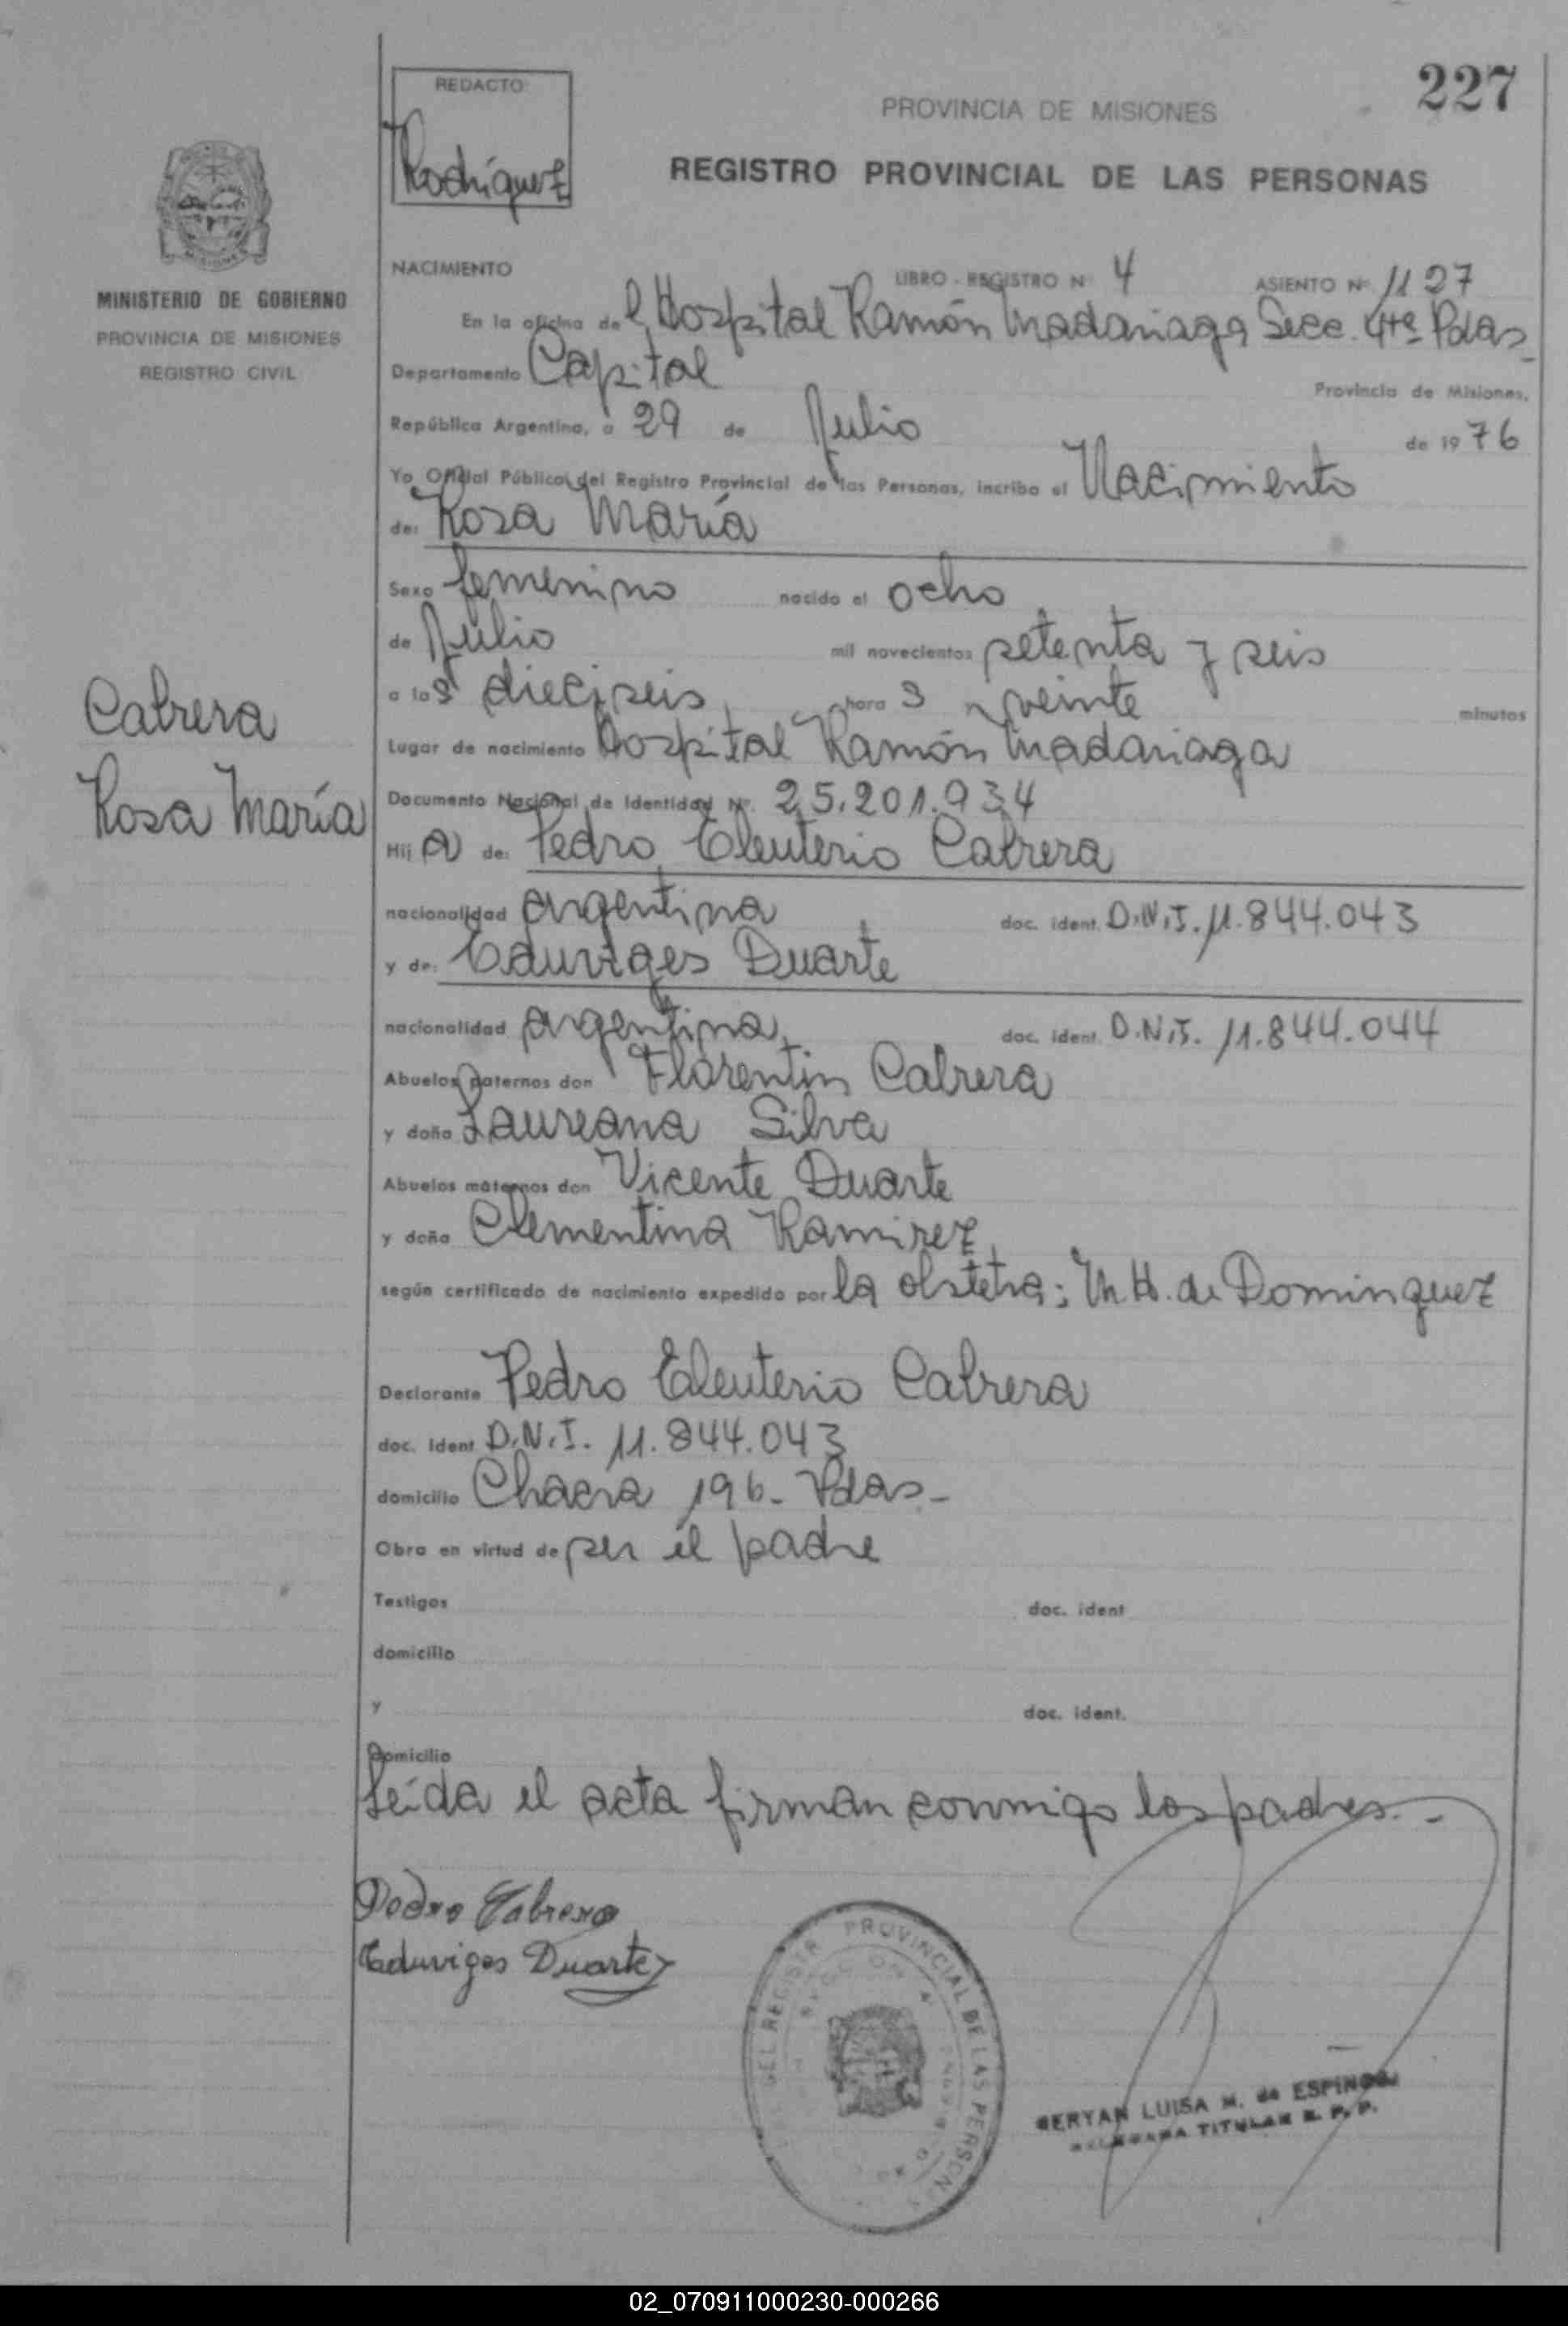 227
REDACTO:
Rodríguez
PROVINCIA DE MISIONES
REGISTRO PROVINCIAL DE LAS PERSONAS
MINISTERIO DE GOBIERNO
PROVINCIA DE MISIONES
REGISTRO CIVIL
NACIMIENTO LIBRO - REGISTRO Nº 4 ASIENTO Nº 1127
En la oficina del Hospital Ramón Madariaga Secc. 4ta Pdas_
Departamento Capital Provincia de Misiones,
República Argentina, a 29 de Julio de 1976
Yo Oficial Público del Registro Provincial de las Personas, inscribo el Nacimiento
de: Rosa María
Sexo femenino nacido el ocho
de Julio mil novecientos setenta y seis
a las dieciseis horas veinte minutos
Lugar de nacimiento Hospital Ramón Madariaga
Documento Nacional de Identidad Nº. 25.201.934
Hija de: Pedro Eleuterio Cabrera
nacionalidad argentina doc. ident. D.N.I. 11.844.043
y de: Eduviges Duarte
nacionalidad argentina doc. ident. D.N.I. 11.844.044
Abuelos paternos don Florentín Cabrera
y doña Laureana Silva
Abuelos maternos don Vicente Duarte
y doña Clementina Ramirez
según certificado de nacimiento expedido por la obstetra; M.H. de Dominguez
Declarante Pedro Eleuterio Cabrera
doc. ident D.N.I. 11.844.043
domicilio Chacra 196- Pdas-
Obra en virtud de ser el padre
Testigos doc. ident
domicilio
y doc. ident.
domicilio
Leída el acta firman conmigo los padres.-
Cabrera
Rosa María
Pedro Cabrera
Eduviges Duarte
DEL REGISTR PROVINCIAL DE LAS PERSON
LUISA M. de ESPINOSA
DELEGADA TITULAR R. P. P.
02_070911000230-000266